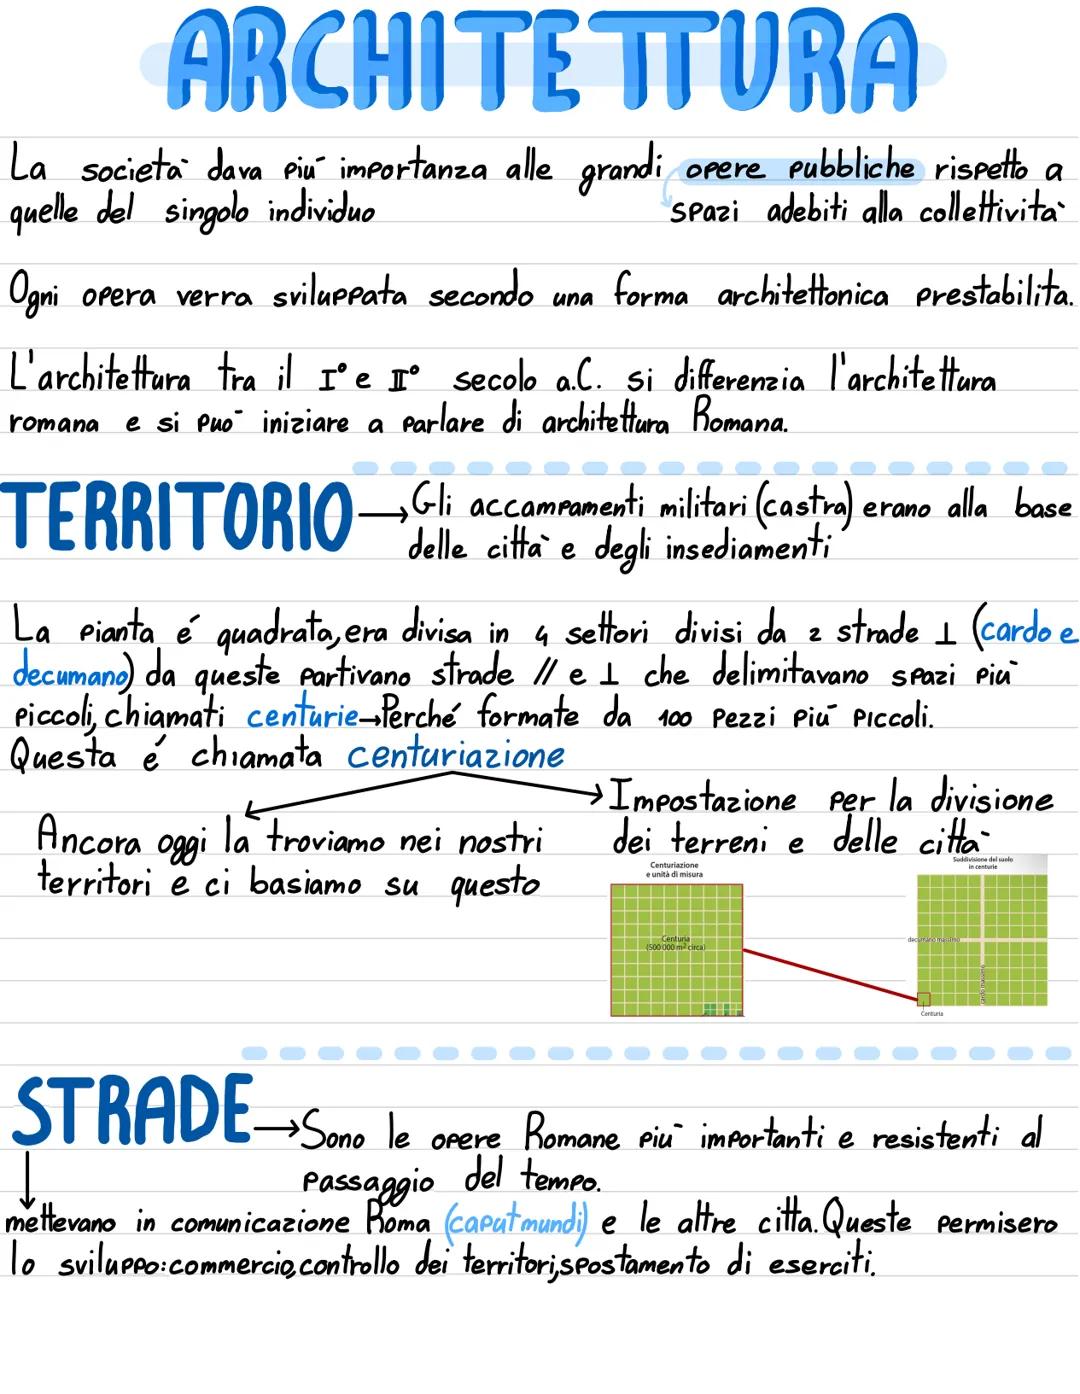 ARCHITETTURA
La società dava più importanza alle grandi opere pubbliche rispetto a
quelle del singolo individuo
spazi adebiti alla collettività
Ogni opera verra sviluppata secondo una forma architettonica prestabilita.
L'architettura tra il I° e II° secolo a.C. si differenzia l'architettura
romana e si può iniziare a parlare di architettura Romana.
TERRITORIO → Gli accampamenti militari (castra) erano alla base
delle città e degli insediamenti
La pianta é quadrata, era divisa in 4 settori divisi da 2 strade ⊥ (cardo e
decumano) da queste partivano strade // e ⊥ che delimitavano spazi più
piccoli, chiamati centurie → Perché formate da 100 pezzi più piccoli.
Questa é chiamata centuriazione
Impostazione per la divisione
dei terreni e delle città
Ancora oggi la troviamo nei nostri
territori e ci basiamo su questo
Centuriazione
e unità di misura
Centuria
(500 000 m² circa)
Suddivisione del suolo
in centurie
decumano massimo
cardo massimo
Centuria
STRADE → Sono le opere Romane più importanti e resistenti al
passaggio del tempo.
mettevano in comunicazione Roma (caput mundi) e le altre citta. Queste permisero
lo sviluppo: commercio, controllo dei territori, spostamento di eserciti.